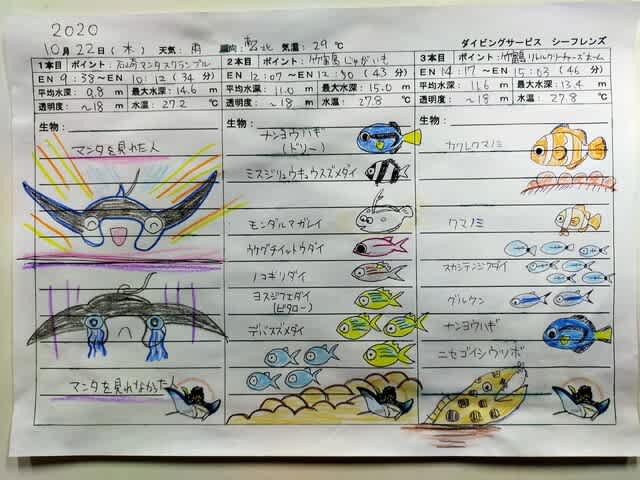 2020
10月22日(木) 天気:雨 風向:北 気温:29℃ ダイビングサービス シーフレンズ
1本目 ポイント:石崎マンタスクランブル
EN 9:38〜EN 10:12 (34分)
平均水深 9.8 m 最大水深 14.6 m
透明度:〜18 m 水温:27.2 ℃
生物:
マンタを見れた人
マンタを見れなかった人
2本目 ポイント:竹富島じゃがいも
EN 12:07〜EN 12:50 (43分)
平均水深 11.0 m 最大水深 15.0 m
透明度:〜18 m 水温:27.8 ℃
生物:
ナンヨウハギ
(ドリー)
ミスジリュウキュウスズメダイ
モンダルマガレイ
ウケグチイットウダイ
ノコギリダイ
ヨスジフエダイ
(ビタロー)
デバスズメダイ
3本目 ポイント:竹富島リトルクリーチャーズホーム
EN 14:17〜EN 15:03 (46分)
平均水深 11.6 m 最大水深 13.4 m
透明度:〜18 m 水温:27.8 ℃
生物:
カクレクマノミ
クマノミ
スカシテンジクダイ
グルクン
ナンヨウハギ
ニセゴイシウツボ